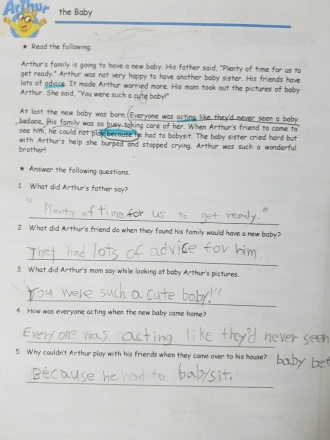 Arthur
the Baby
★ Read the following.
Arthur's family is going to have a new baby. His father said, "Plenty of time for us to
get ready." Arthur was not very happy to have another baby sister. His friends have
lots of advice. It made Arthur worried more. His mom took out the pictures of baby
Arthur. She said, "You were such a cute baby!"
At last the new baby was born. Everyone was acting like they'd never seen a baby
before. His family was so busy taking care of her. When Arthur's friend to came to
see him, he could not play because he had to babysit. The baby sister cried hard but
with Arthur's help she burped and stopped crying. Arthur was such a wonderful
brother!
★ Answer the following questions.
1 What did Arthur's father say?
"Plenty of time for us to get ready."
2 What did Arthur's friend do when they found his family would have a new? baby?
They had lots of advice for him.
3 What did Arthur's mom say while looking at baby Arthur's pictures.
You were such a cute baby!"
4 How was everyone acting when the new baby came home?
Everyone was acting like they'd never seen
baby bef
5 Why couldn't Arthur play with his friends when they came over to his house?
Because he had to babysit.